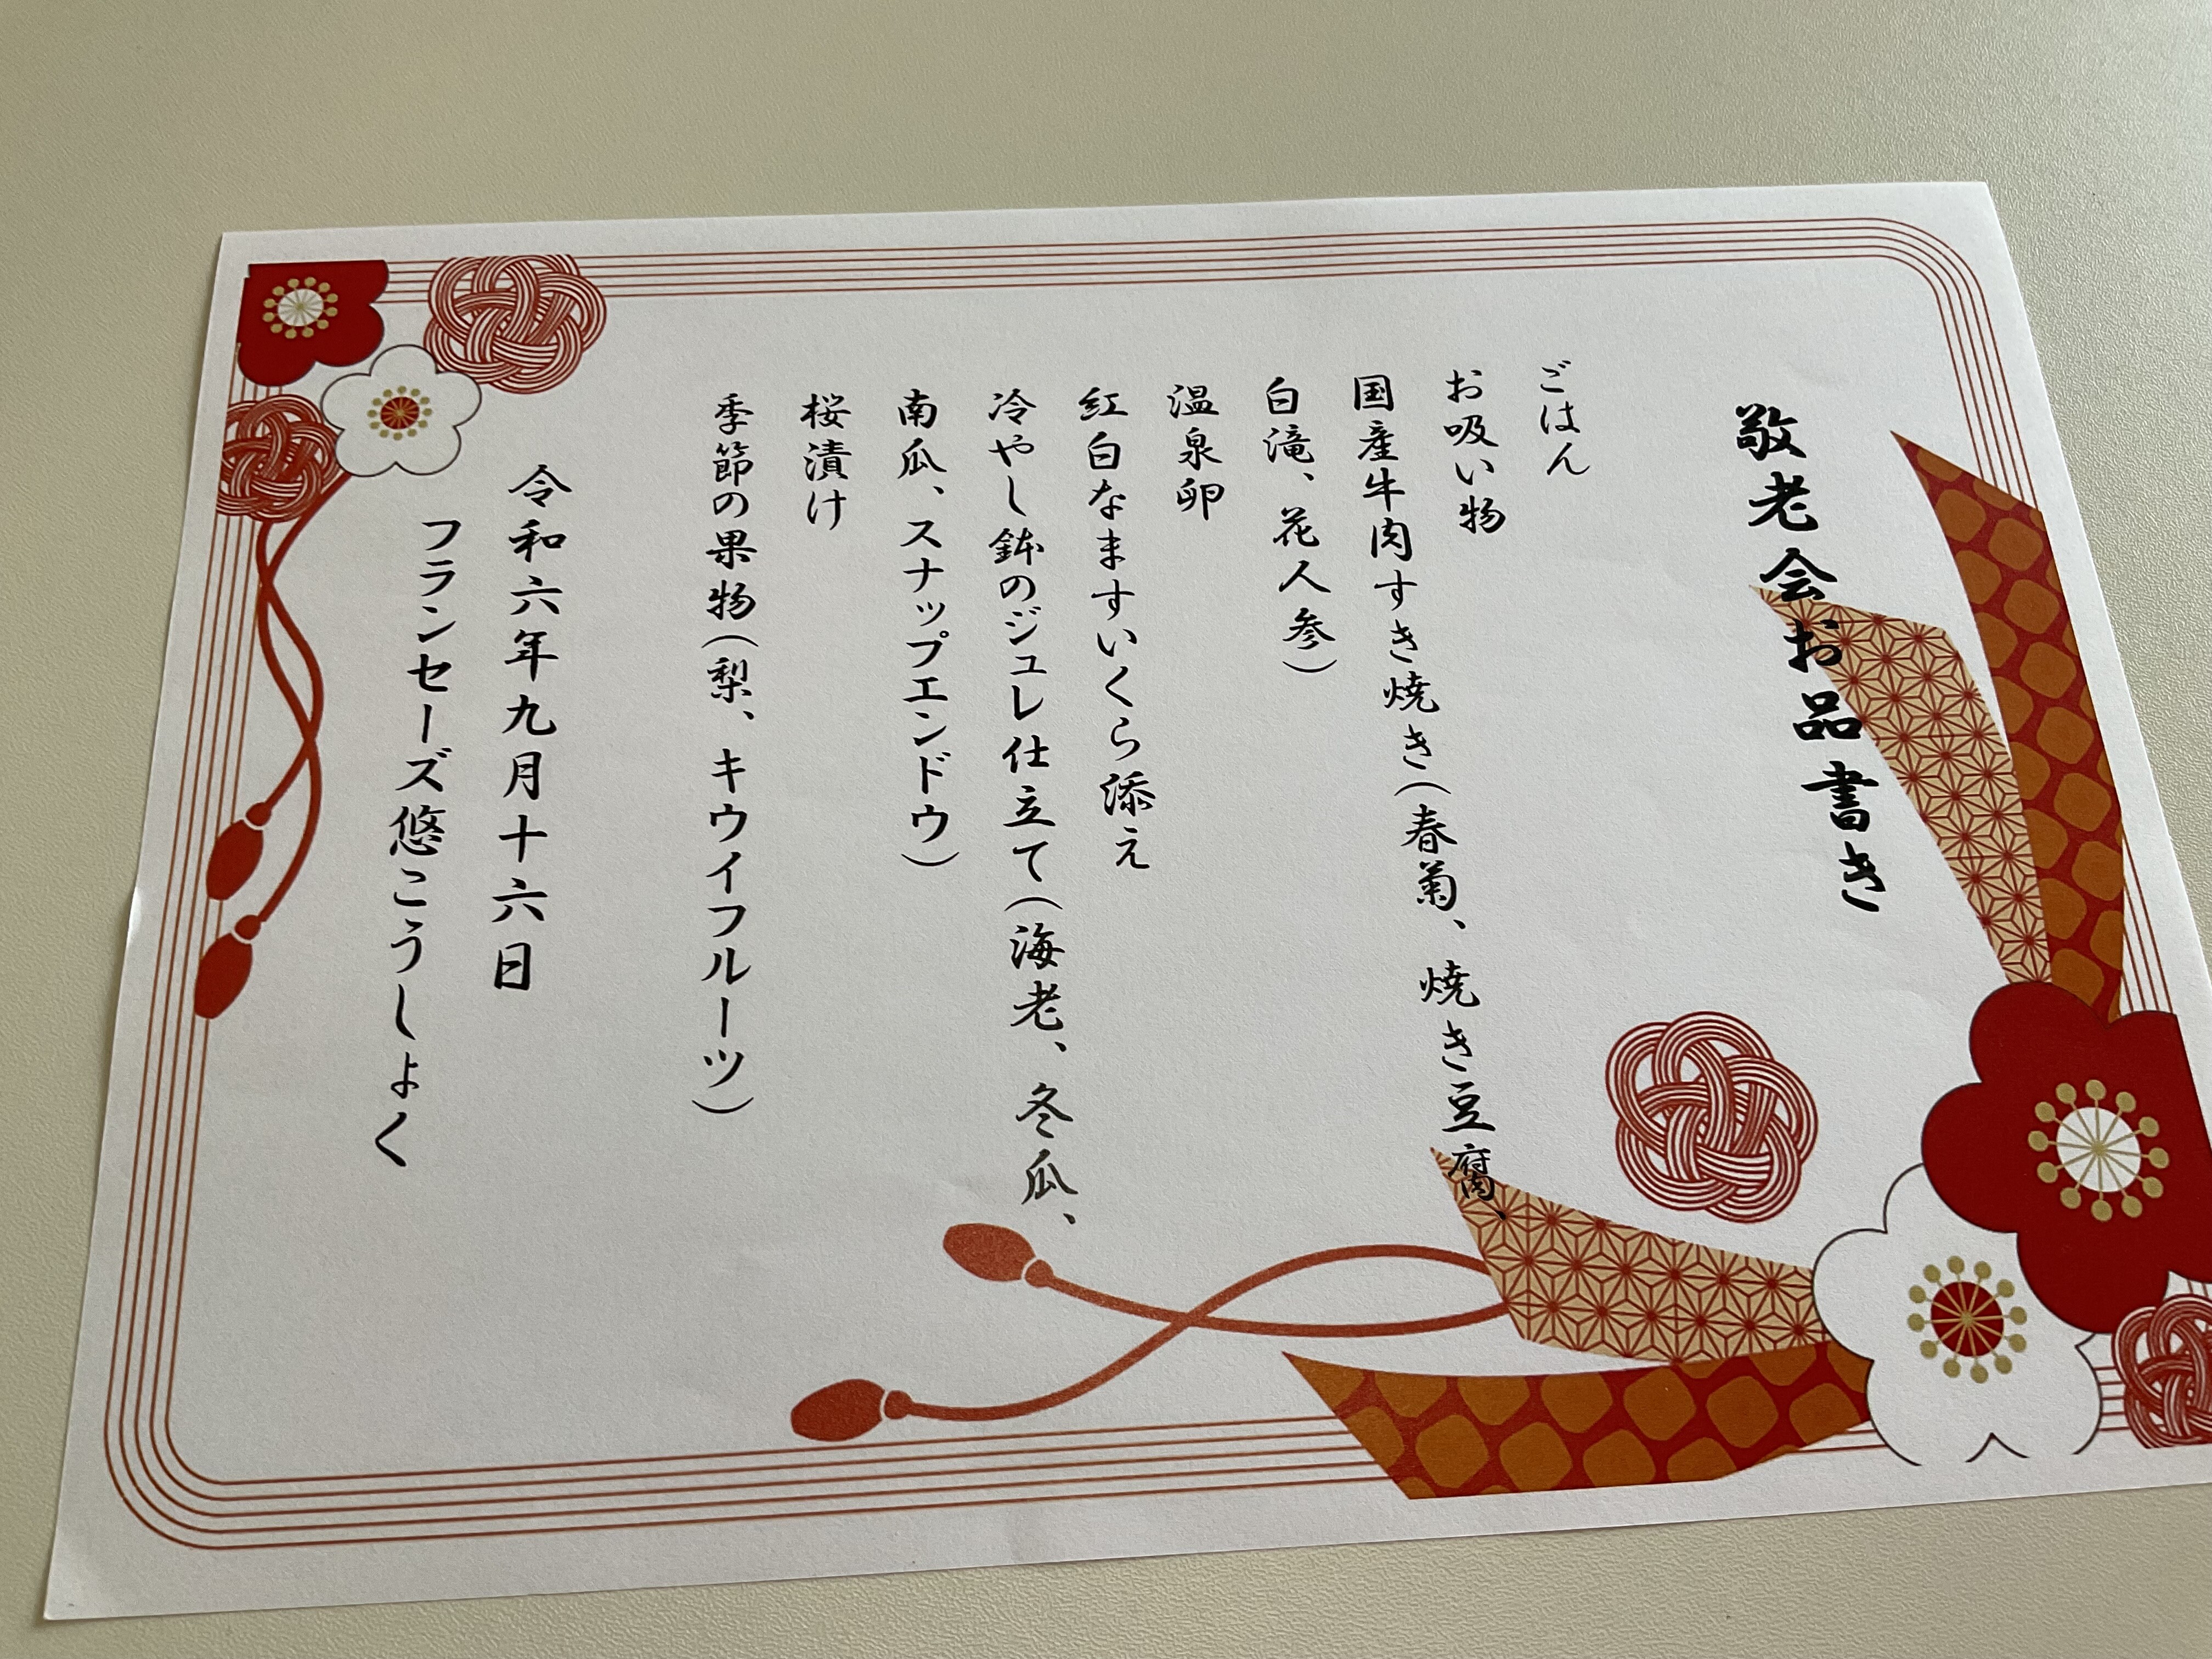 敬老会お品書き
ごはん
お吸い物
国産牛肉すき焼き(春菊、焼き豆腐、
白滝、花人参)
温泉卵
紅白なますいくら添え
冷やし鉢のジュレ仕立て(海老、冬瓜、
南瓜、スナップエンドウ)
桜漬け
季節の果物(梨、キウイフルーツ)
令和六年九月十六日
フランセーズ悠こうしょく